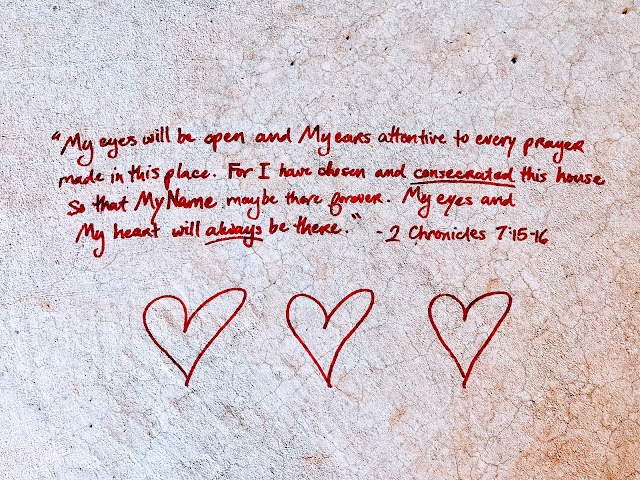 "My eyes will be open and My ears attentive to every prayer
made in this place. For I have chosen and consecrated this house
So that My Name maybe there forever. My eyes and
My heart will always be there." - 2 Chronicles 7:15-16